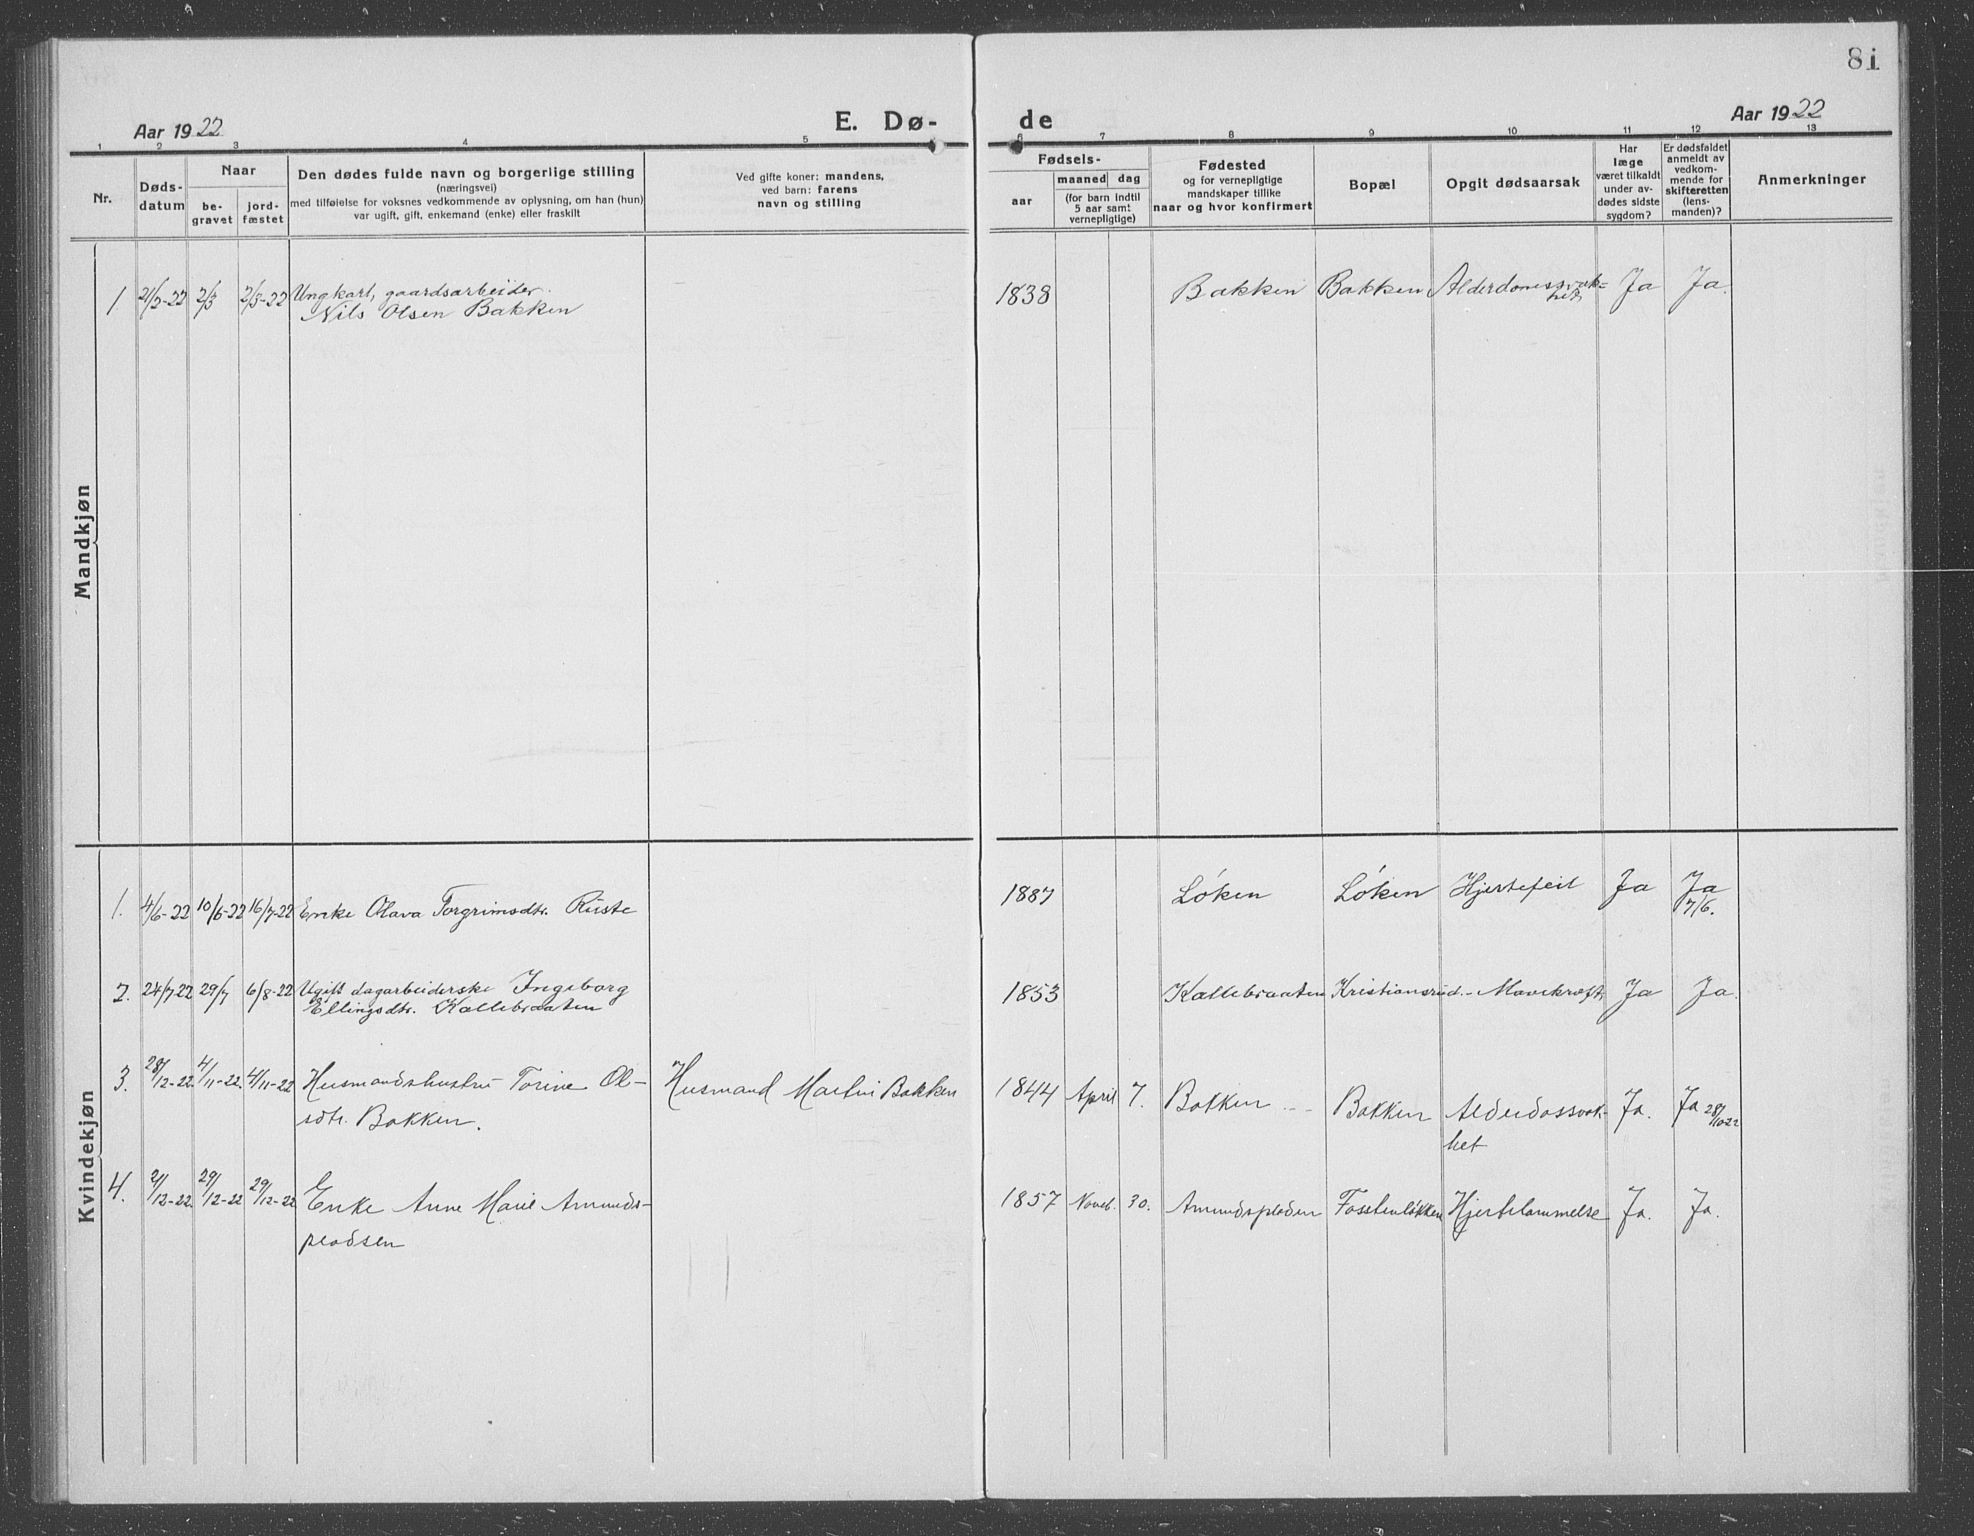 81
Aar 1922
E. Dø-
de
Aar 1922
1 2 3 4 5 6 7 8 9 10 11 12 13
Nr.
Døds-
datum
Naar
be-
gravet
jord-
fæstet
Den dødes fulde navn og borgerlige stilling
(næringsvei)
med tilføielse for voksnes vedkommende av oplysning, om han (hun)
var ugift, gift, enkemand (enke) eller fraskilt
Ved gifte koner: mandens,
ved barn: farens
navn og stilling
Fødsels-
aar
maaned dag
(for barn indtil
5 aar samt
vernepligtige)
Fødested
og for vernepligtige
mandskaper tillike
naar og hvor konfirmert
Bopæl
Opgit dødsaarsak
Har
læge
været tilkaldt
under av-
dødes sidste
sygdom?
Er dødsfaldet
anmeldt av
vedkom-
mende for
skifteretten
(lens-
manden)?
Anmerkninger
Mandkjøn
1. 21/2-22 2/3 2/3-22 Ungkarl, gaardsarbeider. 1838 Bakken Bakken Alderdomssvak- Ja Ja.
Nils Olsen Bakken het
Kvindekjøn
1. 4/6-22 10/6-22 16/7-22 Enke Olava Torgrimsdtr. Ruste 1887 Løken Løken Hjertefeil Ja Ja
7/6.
2. 24/7-22 29/7 6/8-22 Ugift dagarbeiderske Ingeborg 1853 Kallebraaten Kristiansrud.- Mavekræft. Ja Ja.
Ellingsdtr. Kallebraaten
3. 28/12-22. 4/11-22. 4/11-22 Husmandshustru Torine Ol- Husmand Martin Bakken 1844 April 7. Bakken Bakken Alderdossvak- Ja. Ja 28/10-22
sdtr. Bakken. het
4. 21/12-22. 29/12-22 29/12-22 Enke Anne Marie Amunds- 1857 Noveb. 30. Amundspladen Fosstenløkken Hjertelammelse Ja. Ja.
pladsen